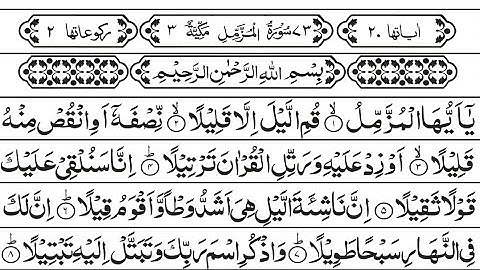 اٰیاتھا ۲۰ ۷۳ سُوْرَةُ الْمُزَّمِّلِ مَكِّیَّةٌ ۳ رکوعاتھا ۲
بِسْمِ اللّٰهِ الرَّحْمٰنِ الرَّحِیْمِ
یٰۤاَیُّهَا الْمُزَّمِّلُ ۙ﴿۱﴾ قُمِ الَّیْلَ اِلَّا قَلِیْلًا ۙ﴿۲﴾ نِّصْفَهٗۤ اَوِ انْقُصْ مِنْهُ
قَلِیْلًا ۙ﴿۳﴾ اَوْ زِدْ عَلَیْهِ وَ رَتِّلِ الْقُرْاٰنَ تَرْتِیْلًا ؕ﴿۴﴾ اِنَّا سَنُلْقِیْ عَلَیْكَ
قَوْلًا ثَقِیْلًا ﴿۵﴾ اِنَّ نَاشِئَةَ الَّیْلِ هِیَ اَشَدُّ وَطْاً وَّ اَقْوَمُ قِیْلًا ؕ﴿۶﴾ اِنَّ لَكَ
فِی النَّهَارِ سَبْحًا طَوِیْلًا ؕ﴿۷﴾ وَ اذْكُرِ اسْمَ رَبِّكَ وَ تَبَتَّلْ اِلَیْهِ تَبْتِیْلًا ؕ﴿۸﴾